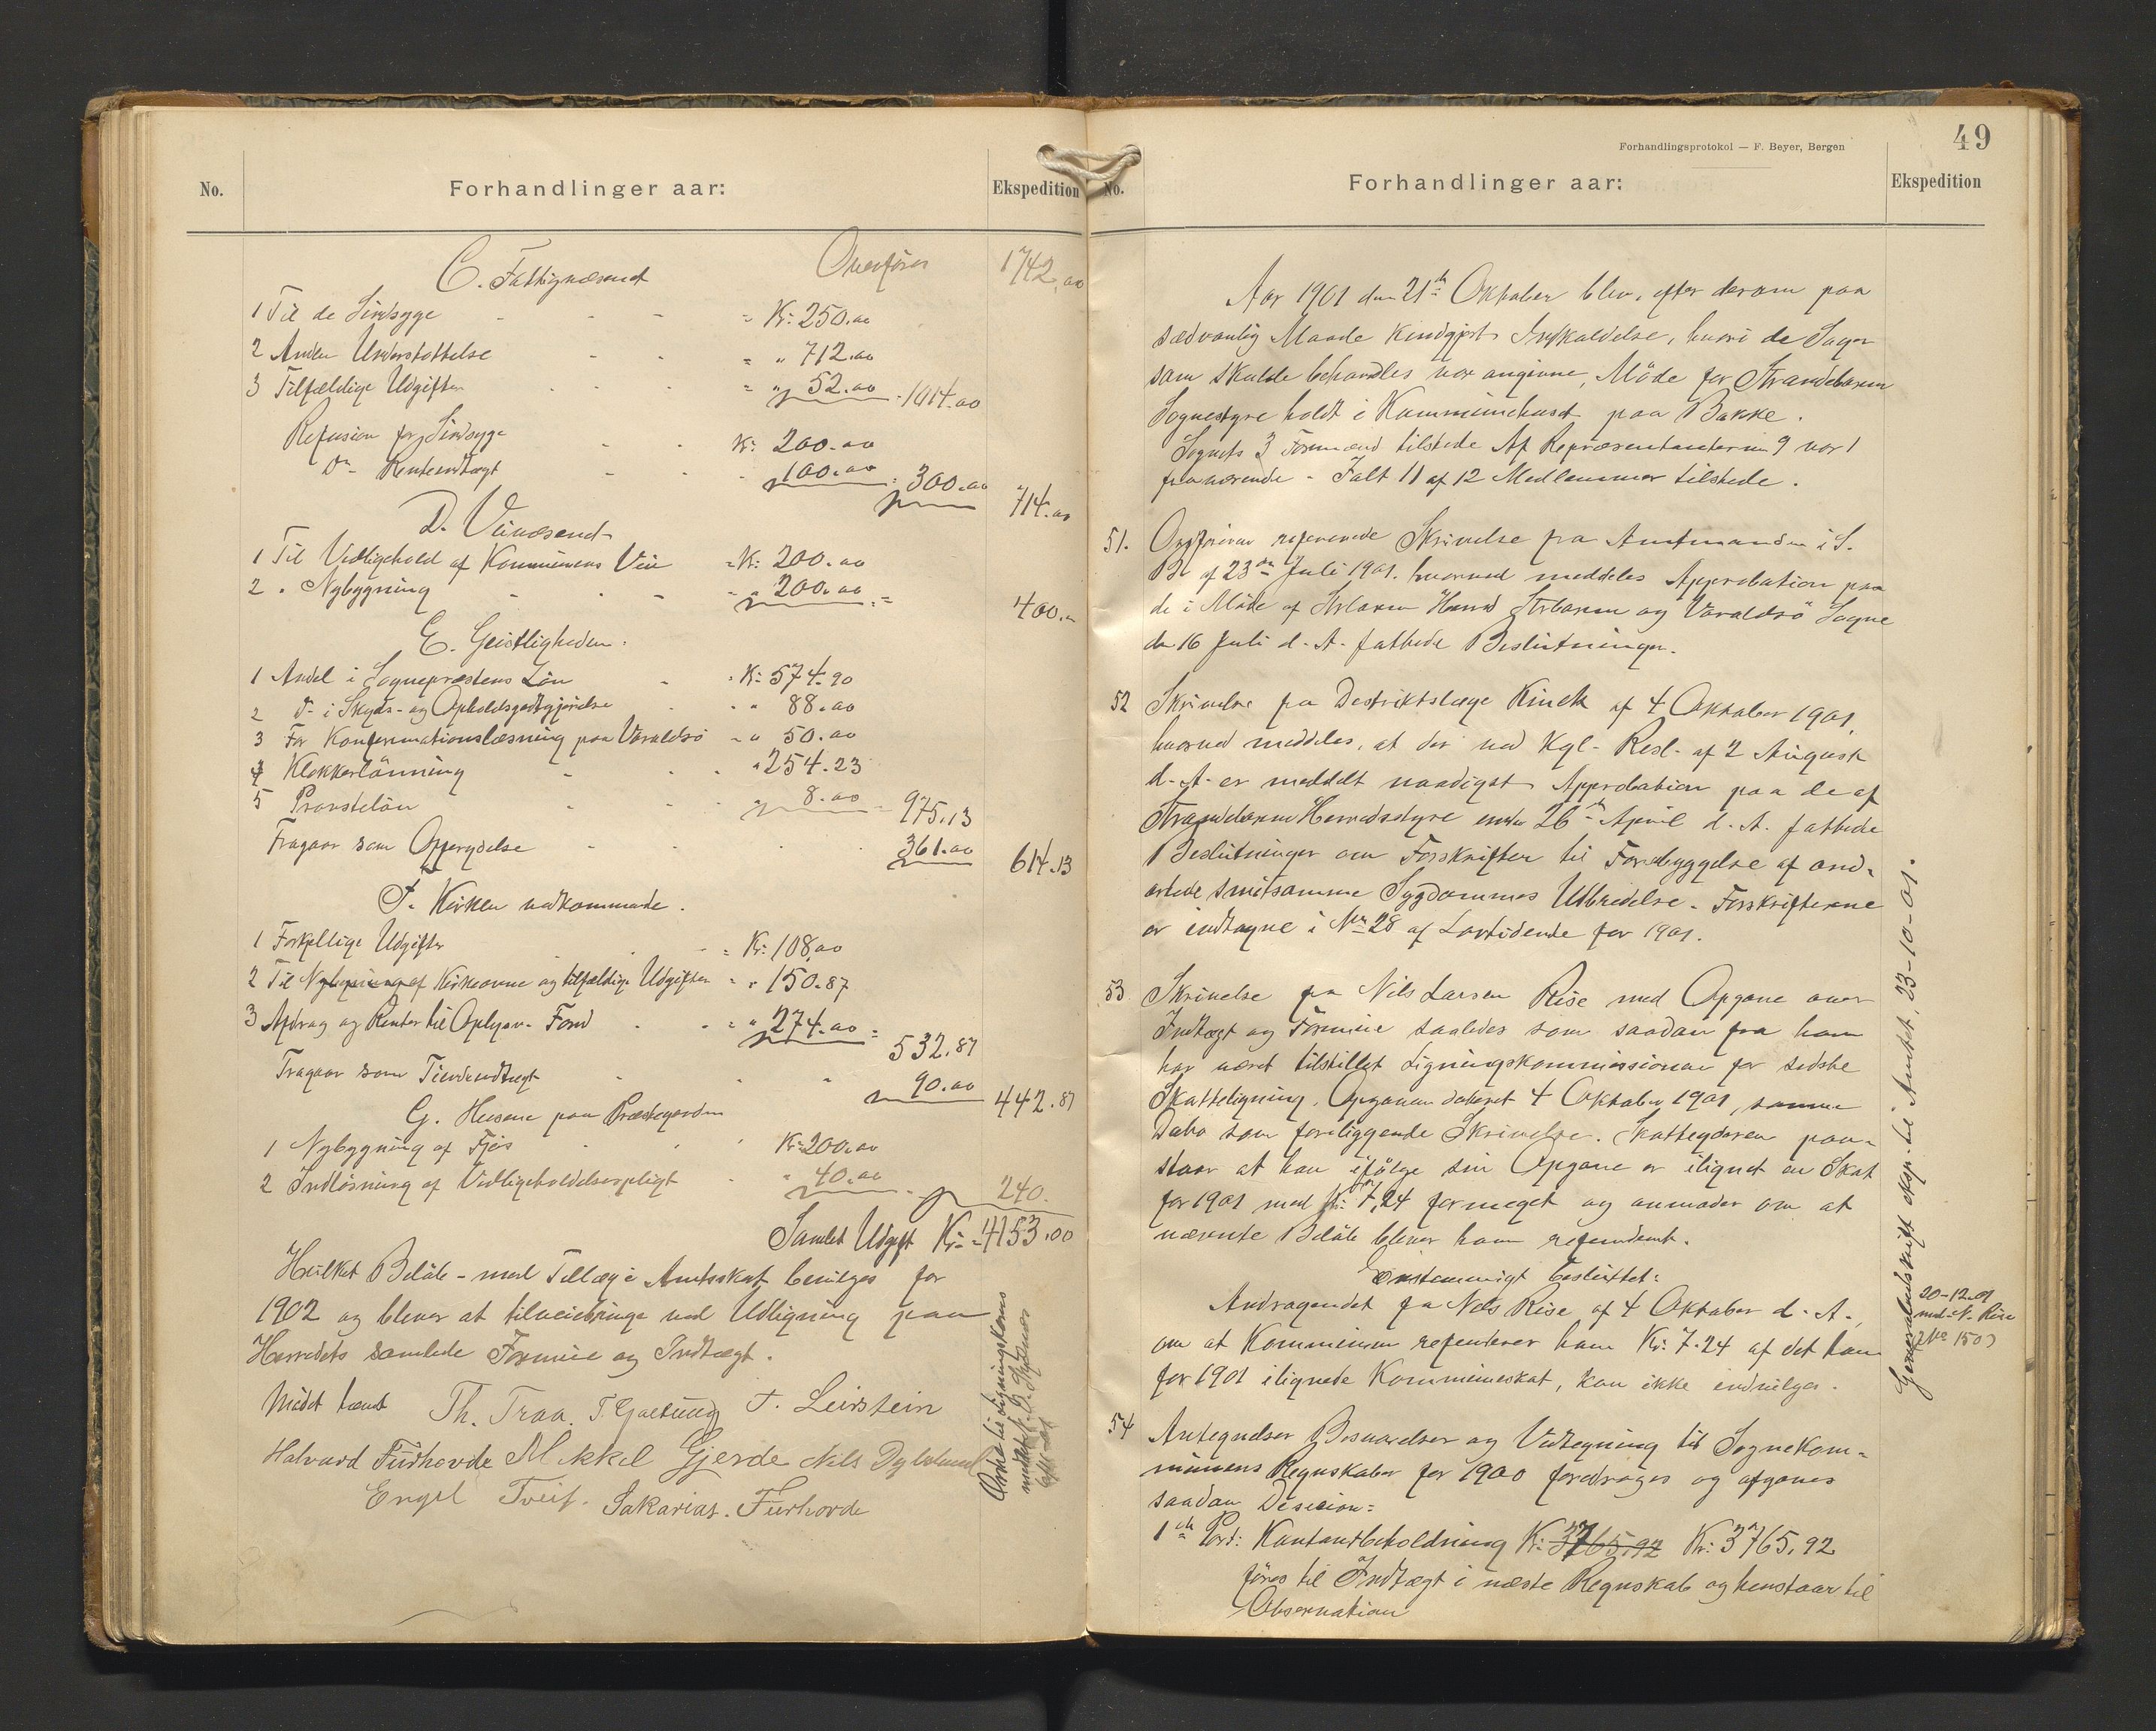 No.
Forhandlinger aar:
Ekspedition
C. Fattigvæsenet Overføres 1742,00
1 Til de Sindsyge - - - = Kr: 250.00
2 Anden Understøttelse - - = " 712.00
3 Tilfældige Udgifter - - - = " 52.00 - 1014.00
Refusion for Sindsyge - - Kr: 200.00
Do - Renteindtægt - - - 100.00 = 300.00 714.00
D. Veivæsenet
1 Til Vedligehold af Kommunens Veie = Kr: 200.00
2 " Nybygning - - - - " 200.00 = 400.-
E. Geistligheden.
1 Andel i Sognepræstens Løn - - Kr: 574.90
2 Do i Skyds- og Opholdsgodtgjørelse - - " 88.00
3 For Konfirmationslæsning paa Varaldsø - " 50.00
4 Klokkerlønning - - - " 254.23
5 Provsteløn - - - " 8.00 = 975.13
Fragaar som Offerydelse - - - 361.00 614.13
F. Kirken vedkommende.
1 Forskjellige Udgifter - - = Kr: 108,00
2 Til Nybygning af Kirkeovne og tilfældige Udgifter - " 150.87
3 Afdrag og Renter til Oplysn. Fond - - = " 274.00 = 532.87
Fragaar som Tiendeindtægt - - " 90.00 442.87
G. Husene paa Præstegaarden
1 Nybygning af Fjøs - - - Kr: 200.00
2 Indløsning af Vedligeholdelsespligt - - " 40.00 - 240.
Samlet Udgift Kr: 4153.00
Hvilket Beløb - med Tillæg i Amtsskat bevilges for
1902 og bliver at tilveiebringe ved Udligning paa
Herredets samlede Formue og Indtægt.
Mødet hævet Th. Traa. T. Gjætung T. Leirstein
Halvard Furhovde Mikkel Gjerde Nils
Engel Tveit. Sakarias. Furhovde
49
Forhandlingsprotokol — F. Beyer, Bergen
No.
Forhandlinger aar:
Ekspedition
Aar 1901 den 21de Oktober blev, efter derom paa
sædvanlig Maade kundgjort Indkaldelse, hvori de Sager
som skulde behandles var angivne, Møde for Strandebarm
Sognestyre holdt i Kommunehuset paa Bakke.
Sognets 3 Formænd tilstede Af Repræsentanterne 9 var 1
fraværende - Ialt 11 af 12 Medlemmer tilstede.
51. Ordføreren refererede Skrivelse fra Amtmanden i S.
B. af 23de Juli 1901. hvorved meddeles Approbation paa
de i Møde af Strbarm Herred Strbarm og Varaldsø Sogne
den 16 Juli d. A. fattede Beslutninger.
52 Skrivelse fra Destriktslæge Kinck af 4 Oktober 1901,
hvorved meddeles, at der ved Kgl. Resl. af 2 August
d. A. er meddelt naadigst Approbation paa de af
Strandebarm Herredsstyre under 26de April d. A. fattede
Beslutninger om Forskrifter til Forebyggelse af ond-
artede smitsomme Sygdommes Udbredelse. Forskrifterne
er indtagne i Nr 28 af Lovtidende for 1901.
53 Skrivelse fra Nils Larsen Rise med Opgave over
Indtægt og Formue saaledes som saadan fra ham
har været tilstillet Ligningskommissionen for sidste
Skatteligning. Opgaven dateret 4 Oktober 1901, samme
Dato som foreliggende Skrivelse. Skatteyderen paa-
staar at han ifølge sin Opgave er ilignet en Skat
for 1901 med Kr: 7,24 formeget og anmoder om at
nævnte Beløb bliver ham refunderet.
Enstemmigt besluttet:
Andragendet fra Nils Rise af 4 Oktober d. A.,
om at Kommunen refunderer ham Kr: 7.24 af det ham
for 1901 ilignede Kommuneskat, kan ikke indvilges.
54 Antegnelser Besvarelser og Vidtegning til Sognekom-
munens Regnskaber for 1900 foredrages og afgaves
saadan Desision:
1ste Post: Kontantbeholdning Kr: 3765,92 Kr: 3765,92
føres til Indtægt i næste Regnskab og henstaar til
Observation
Genpartudskrift eksp. til Amtet, 23-10-01.
20-12.01
med. N. Rise
(No 150)